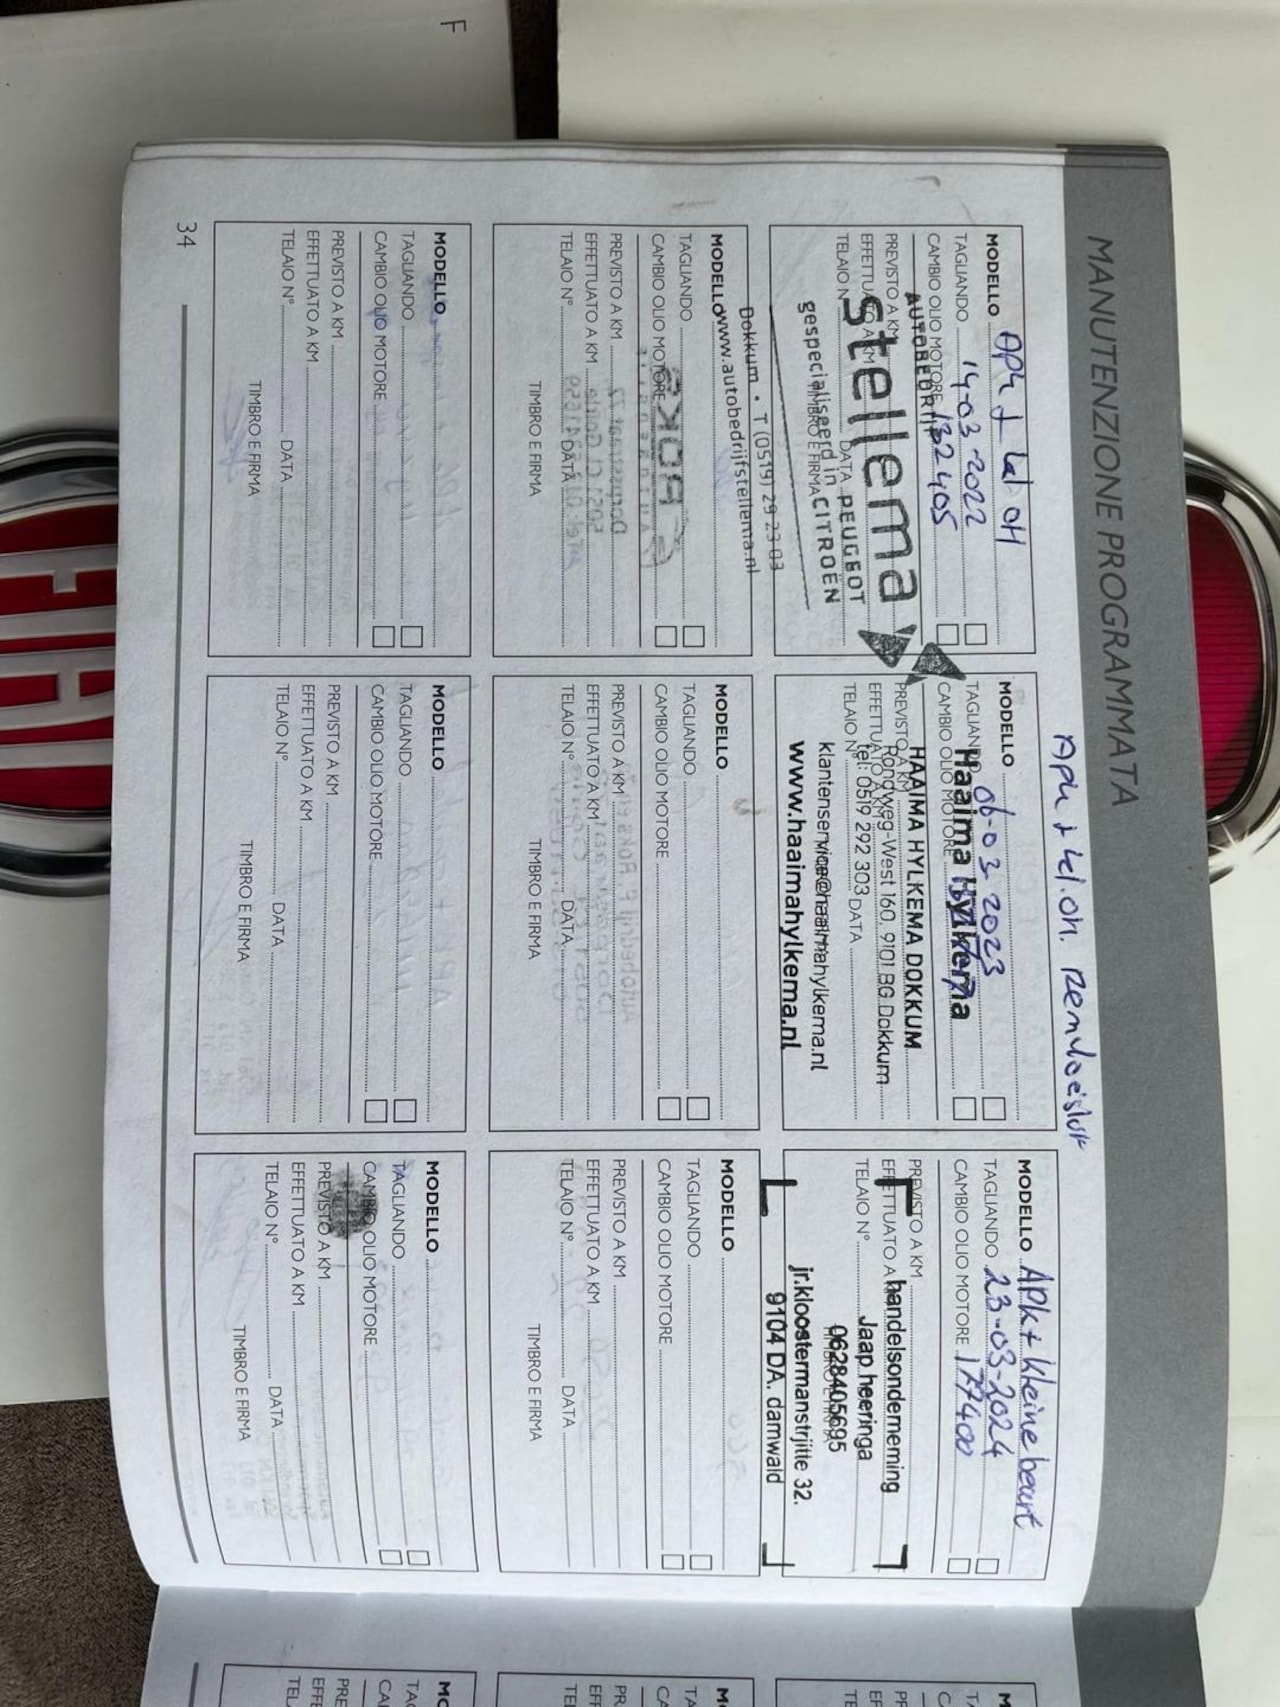 F
FIAT
MANUTENZIONE PROGRAMMATA
MODELLO APK + kl OH
TAGLIANDO 14-03-2022
CAMBIO OLIO MOTORE 132405
PREVISTO A KM
EFFETTUATO A KM
TELAIO N°
DATA
TIMBRO E FIRMA
AUTOBEDRIJF
stellema
gespecialiseerd in PEUGEOT
CITROËN
Dokkum • T (0519) 29 23 03
www.autobedrijfstellema.nl
APK + kl.OH. remvloeistof
MODELLO
TAGLIANDO 06-03-2023
CAMBIO OLIO MOTORE
PREVISTO A KM
EFFETTUATO A KM
TELAIO N°
DATA
Haaima Hylkema
HAAIMA HYLKEMA DOKKUM
Rondweg-West 160, 9101 BG Dokkum
tel: 0519 292 303
klantenservice@haaimahylkema.nl
www.haaimahylkema.nl
MODELLO APK + kleine beurt
TAGLIANDO 23-03-2024
CAMBIO OLIO MOTORE 177400
PREVISTO A KM
EFFETTUATO A KM
TELAIO N°
handelsonderneming
Jaap heeringa
0628405695
jr.kloostermanstrjitte 32.
9104 DA. damwald
MODELLO
TAGLIANDO
CAMBIO OLIO MOTORE
PREVISTO A KM
EFFETTUATO A KM
TELAIO N° DATA
TIMBRO E FIRMA
MODELLO
TAGLIANDO
CAMBIO OLIO MOTORE
PREVISTO A KM
EFFETTUATO A KM
TELAIO N° DATA
TIMBRO E FIRMA
MODELLO
TAGLIANDO
CAMBIO OLIO MOTORE
PREVISTO A KM
EFFETTUATO A KM
TELAIO N° DATA
TIMBRO E FIRMA
MODELLO
TAGLIANDO
CAMBIO OLIO MOTORE
PREVISTO A KM
EFFETTUATO A KM
TELAIO N° DATA
TIMBRO E FIRMA
MODELLO
TAGLIANDO
CAMBIO OLIO MOTORE
PREVISTO A KM
EFFETTUATO A KM
TELAIO N° DATA
TIMBRO E FIRMA
MODELLO
TAGLIANDO
CAMBIO OLIO MOTORE
PREVISTO A KM
EFFETTUATO A KM
TELAIO N° DATA
TIMBRO E FIRMA
34